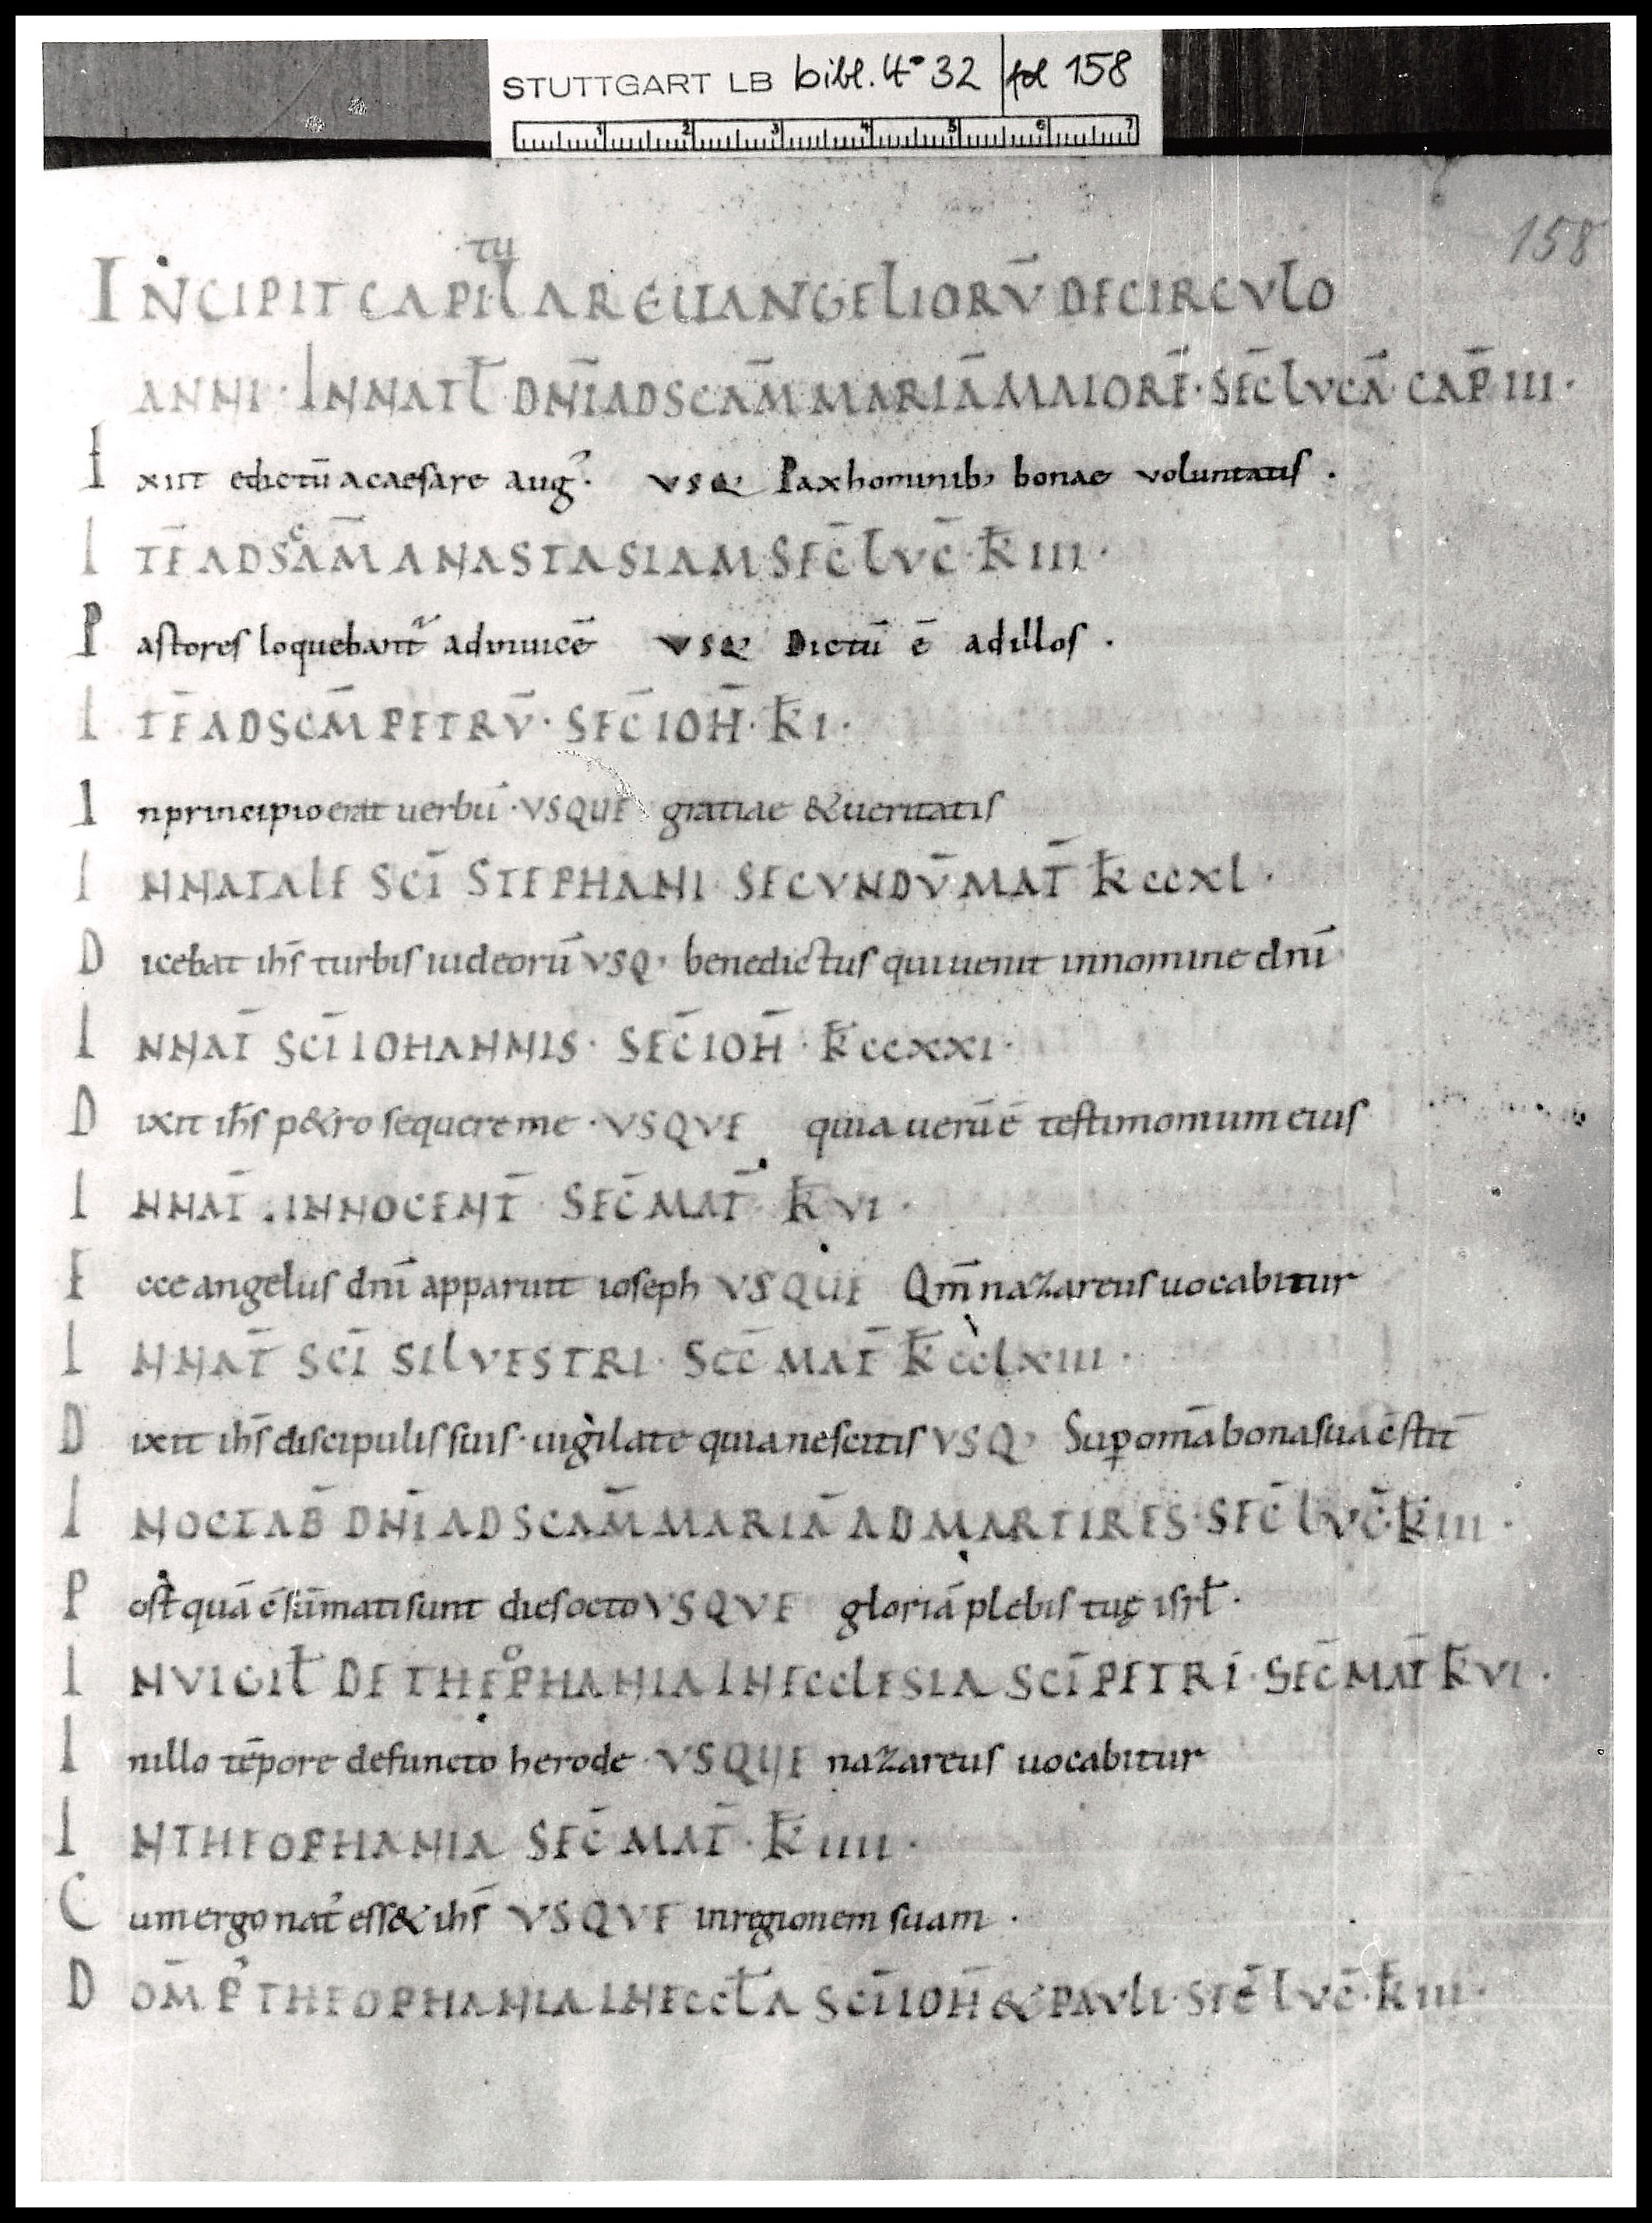 STUTTGART LB bibl. 4° 32 | fol 158
1 2 3 4 5 6 7
158
tu
INCIPIT CAPILAR EUANGELIORV̄ DE CIRCVLO
ANNI · INNATŁ DN̄I AD SCAM̄ MARIĀ MAIORĒ · SEC̄ LVCĀ CAP̄ III ·
Exiit edictū a caesare aug᾽· VSQ· Pax hominib; bonae voluntatis ·
ITĒ AD SCAM̄ ANASTASIAM SEC̄ LVC̄ · K̄ III ·
Pastores loquebant᾽ adinuicē VSQ· Dictū ē ad illos ·
ITĒ AD SCM̄ PETRV̄ · SEC̄ IOH̄ · K̄ I ·
In principio erat uerbū · VSQUE gratiae & ueritatis
INNATALE SCĪ STEPHANI SECVNDV̄ MAT̄ K̄ CCXL ·
Dicebat ih̄s turbis iudeorū VSQ· benedictus qui uenit in nomine dnī
INNAT̄ SCĪ IOHANNIS · SEC̄ IOH̄ · K̄ CCXXI ·
Dixit ih̄s p&ro sequere me · VSQVE quia uerū ē testimonium eius
INNAT̄ · INNOCENT̄ SEC̄ MAT̄ · K̄ VI ·
Ecce angelus dnī apparuit ioseph VSQUE Qm̄ nazareus uocabitur
INNAT̄ SCĪ SILVESTRI · SEC̄ MAT̄ K̄ CCLXIII ·
Dixit ih̄s discipulis suis · uigilate quia nescitis VSQ· Sup̱ om̄a bona sua c̄stit̄
IN OCTAB̄ DN̄I AD SCAM̄ MARIĀ AD MARTIRES · SEC̄ LVC̄ · K̄ III ·
Postquā c̄sūmati sunt dies octo VSQVE gloriā plebis tuę isrł ·
IN VIGIŁ DE THEOPHANIA IN ECCLESIA SCĪ PETRI · SEC̄ MAT̄ K̄ VI ·
In illo tēpore defuncto herode · VSQUE nazareus uocabitur
IN THEOPHANIA SEC̄ MAT̄ · K̄ IIII ·
Cum ergo nat᾽ ess& ih̄s VSQVE in regionem suam ·
DOM̄ P᾽ THEOPHANIA IN ECCŁA SCĪ IOH̄ & PAVLI · SEC̄ LVC̄ · K̄ III ·